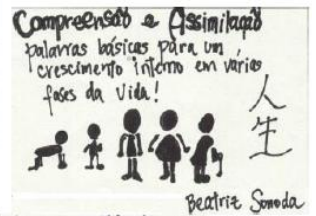 Compreensão e Assimilação
palavras básicas para um
crescimento interno em várias
fases da vida!
人生
Beatriz Sonoda